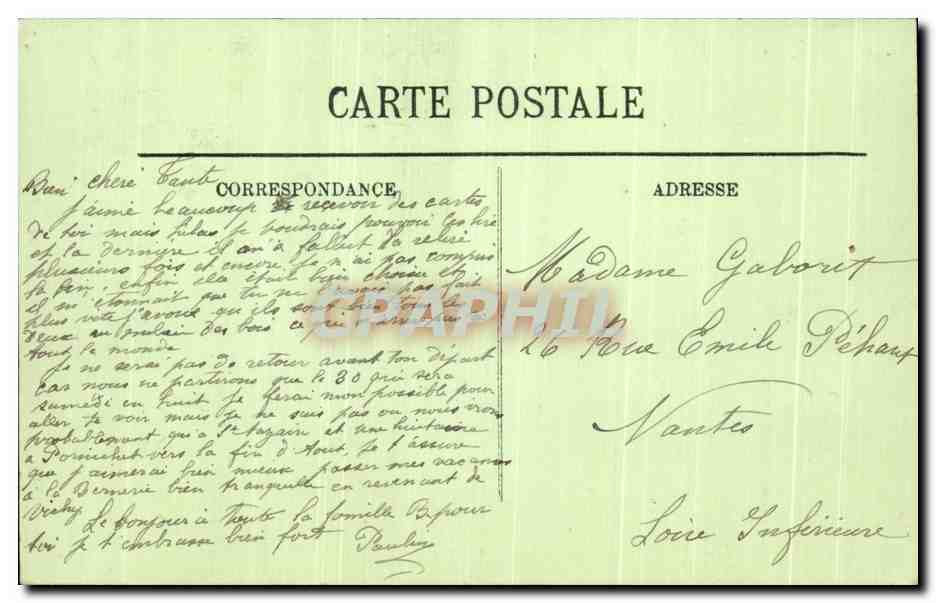 CARTE POSTALE
CORRESPONDANCE
ADRESSE
Bien cheré Tante
J'aime beaucoup recevoir des cartes
de toi mais helas je voudrais pouvoir les lire
et la dernière il m'a fallut la reliré
plusieurs fois et encore je n'ai pas compris
la fin, enfin cela était bien choisie et
il m'étonnait que tu ne l'avais pas fait
plus vite j'avoue qu'ils sont bien tous les
deux au des bois ce qui n'arrive pas a
tout le monde
Je ne serai pas de retour avant ton départ
car nous ne partirons que le 30 qui sera
samedi en huit je ferai mon possible pour
aller te voir mais je ne sais pas ou nous irons
probablement qu'a St Nazaire et une huitaine
a Pornichet vers la fin d'Aout, je t'assure
que j'aimerai bien mieux passer mes vacances
à la Bernerie bien tranquille en revenant de
Vichy
Le bonjour à toute la famille B. pour
toi je t'embrasse bien fort
Paulin
Madame Gaborit
26 Rue Emile Péhant
Nantes
Loire Inférieure
CPAPHIL